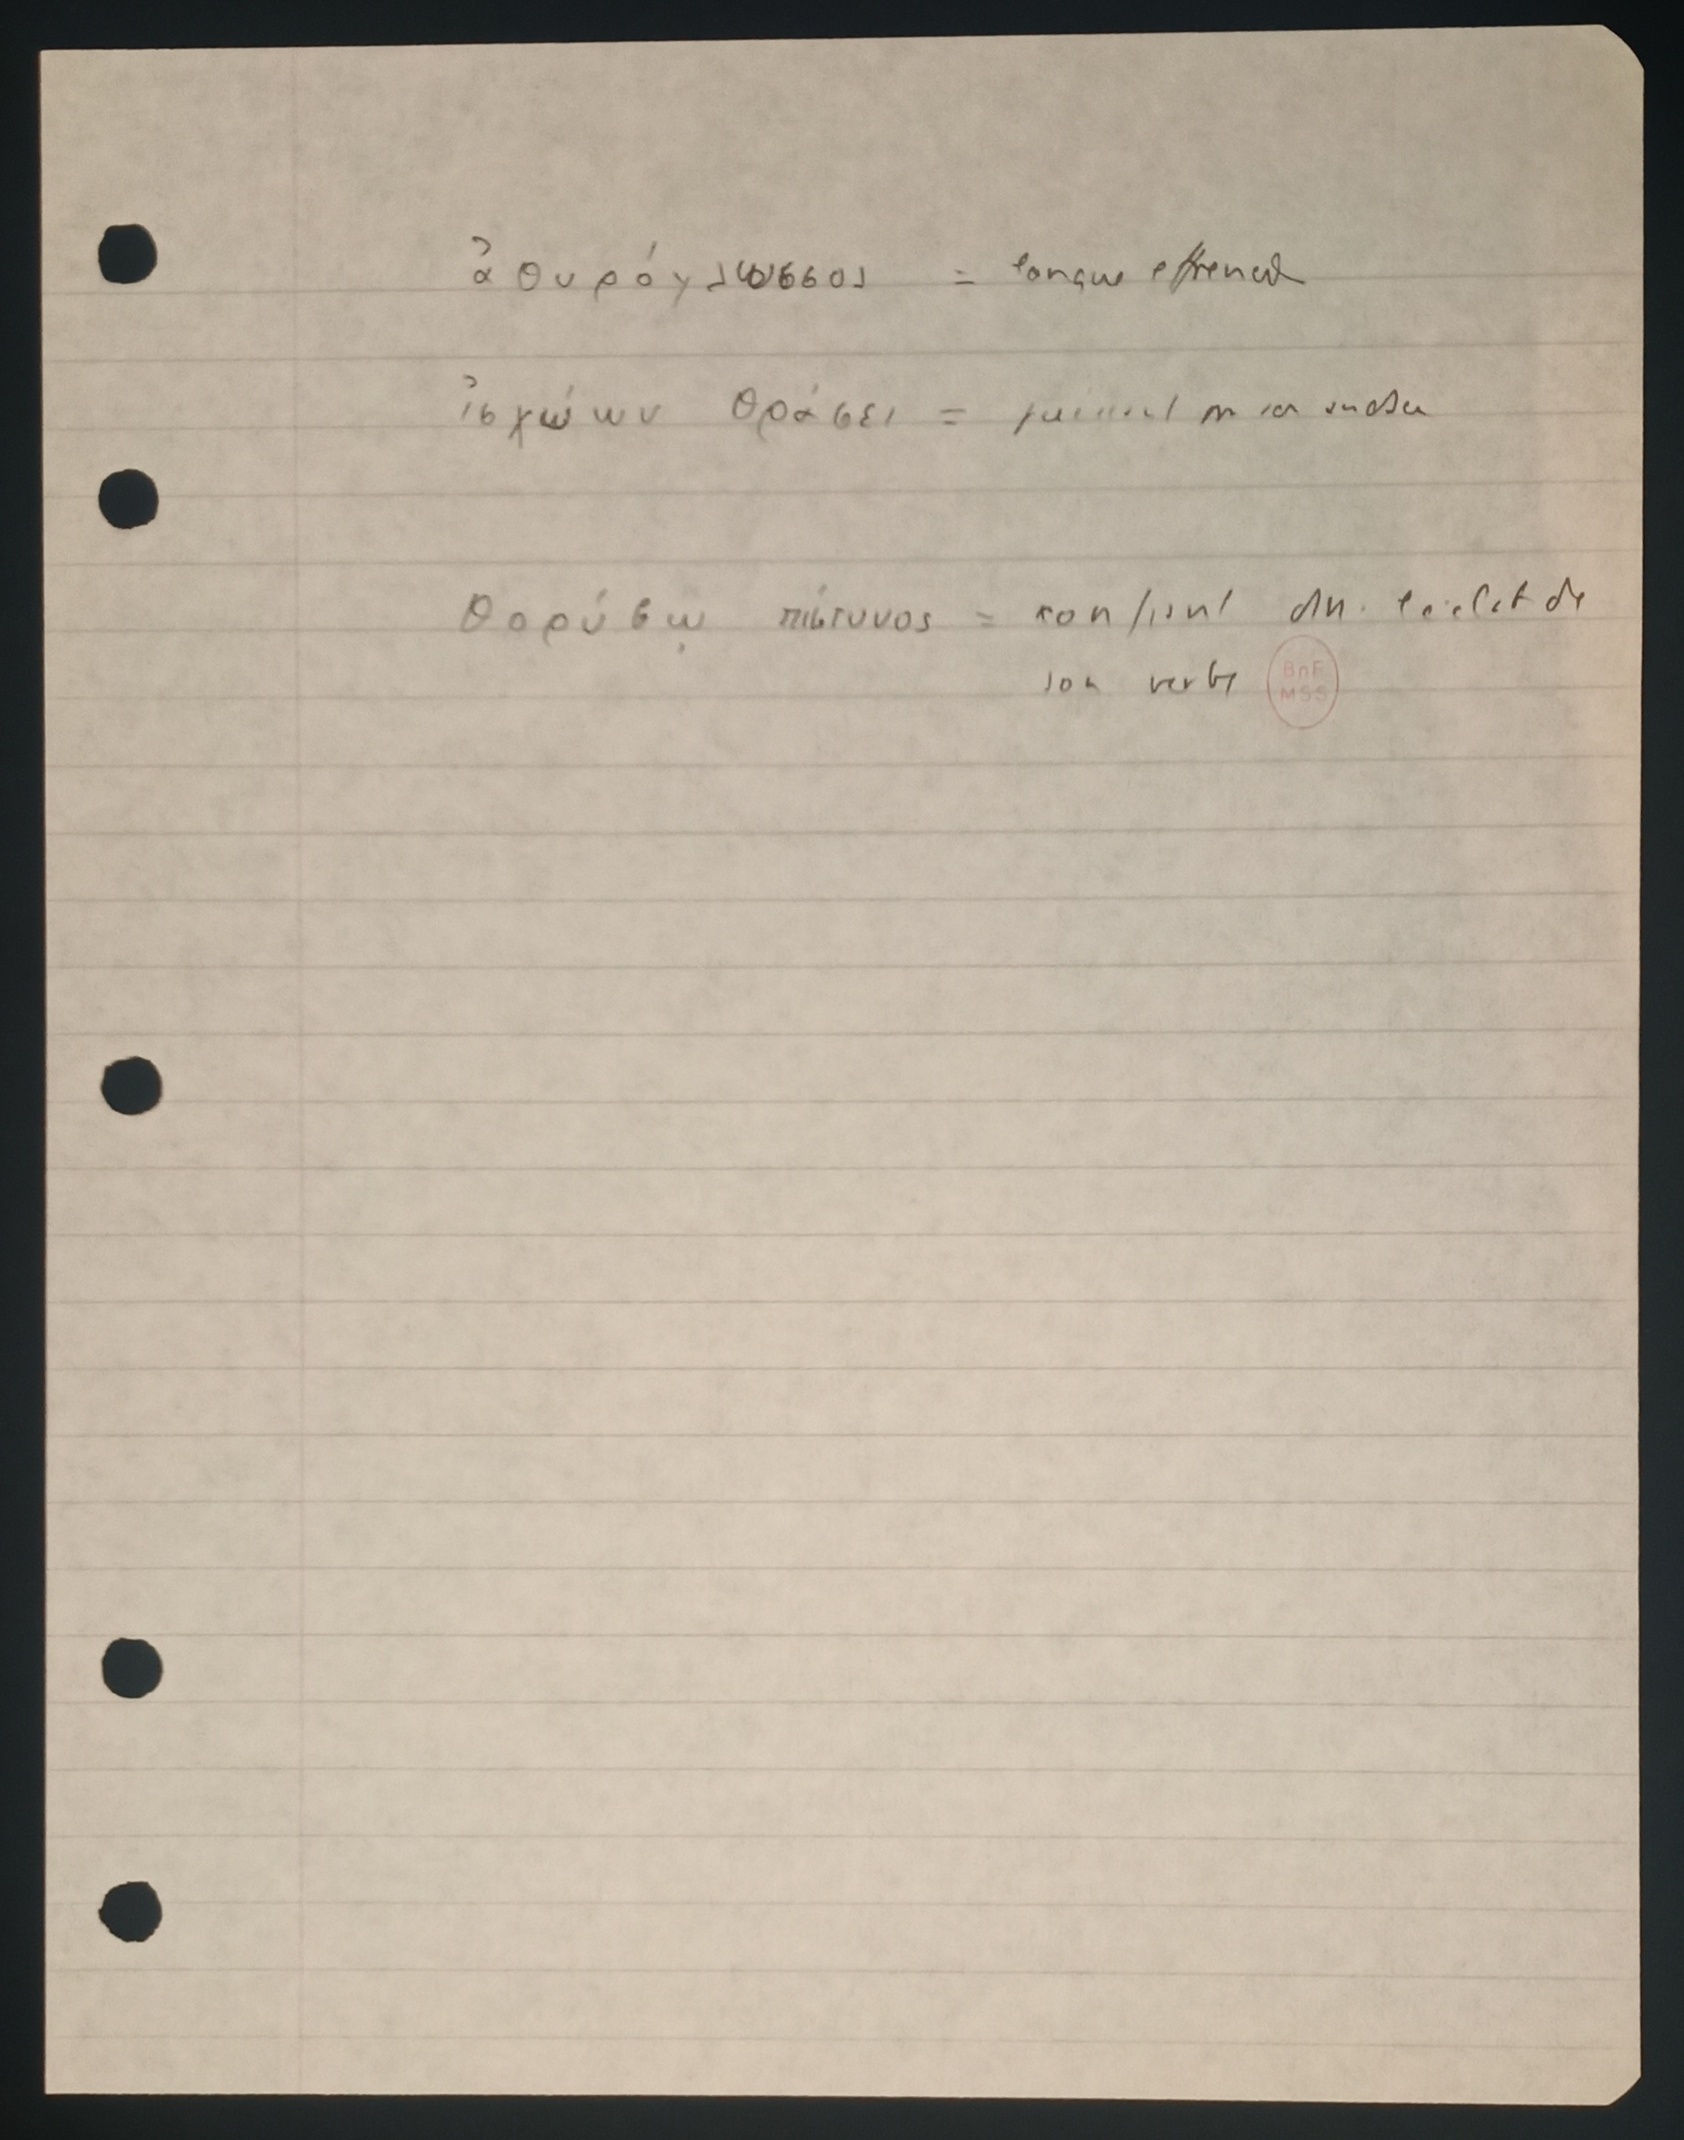 ἀθυρόγλωσσος = langue effrénée
ἰσχύων θράσει = puissant par son audace
θορύβῳ πίσυνος = confiant dans l'éclat de
son verbe BnF
MSS